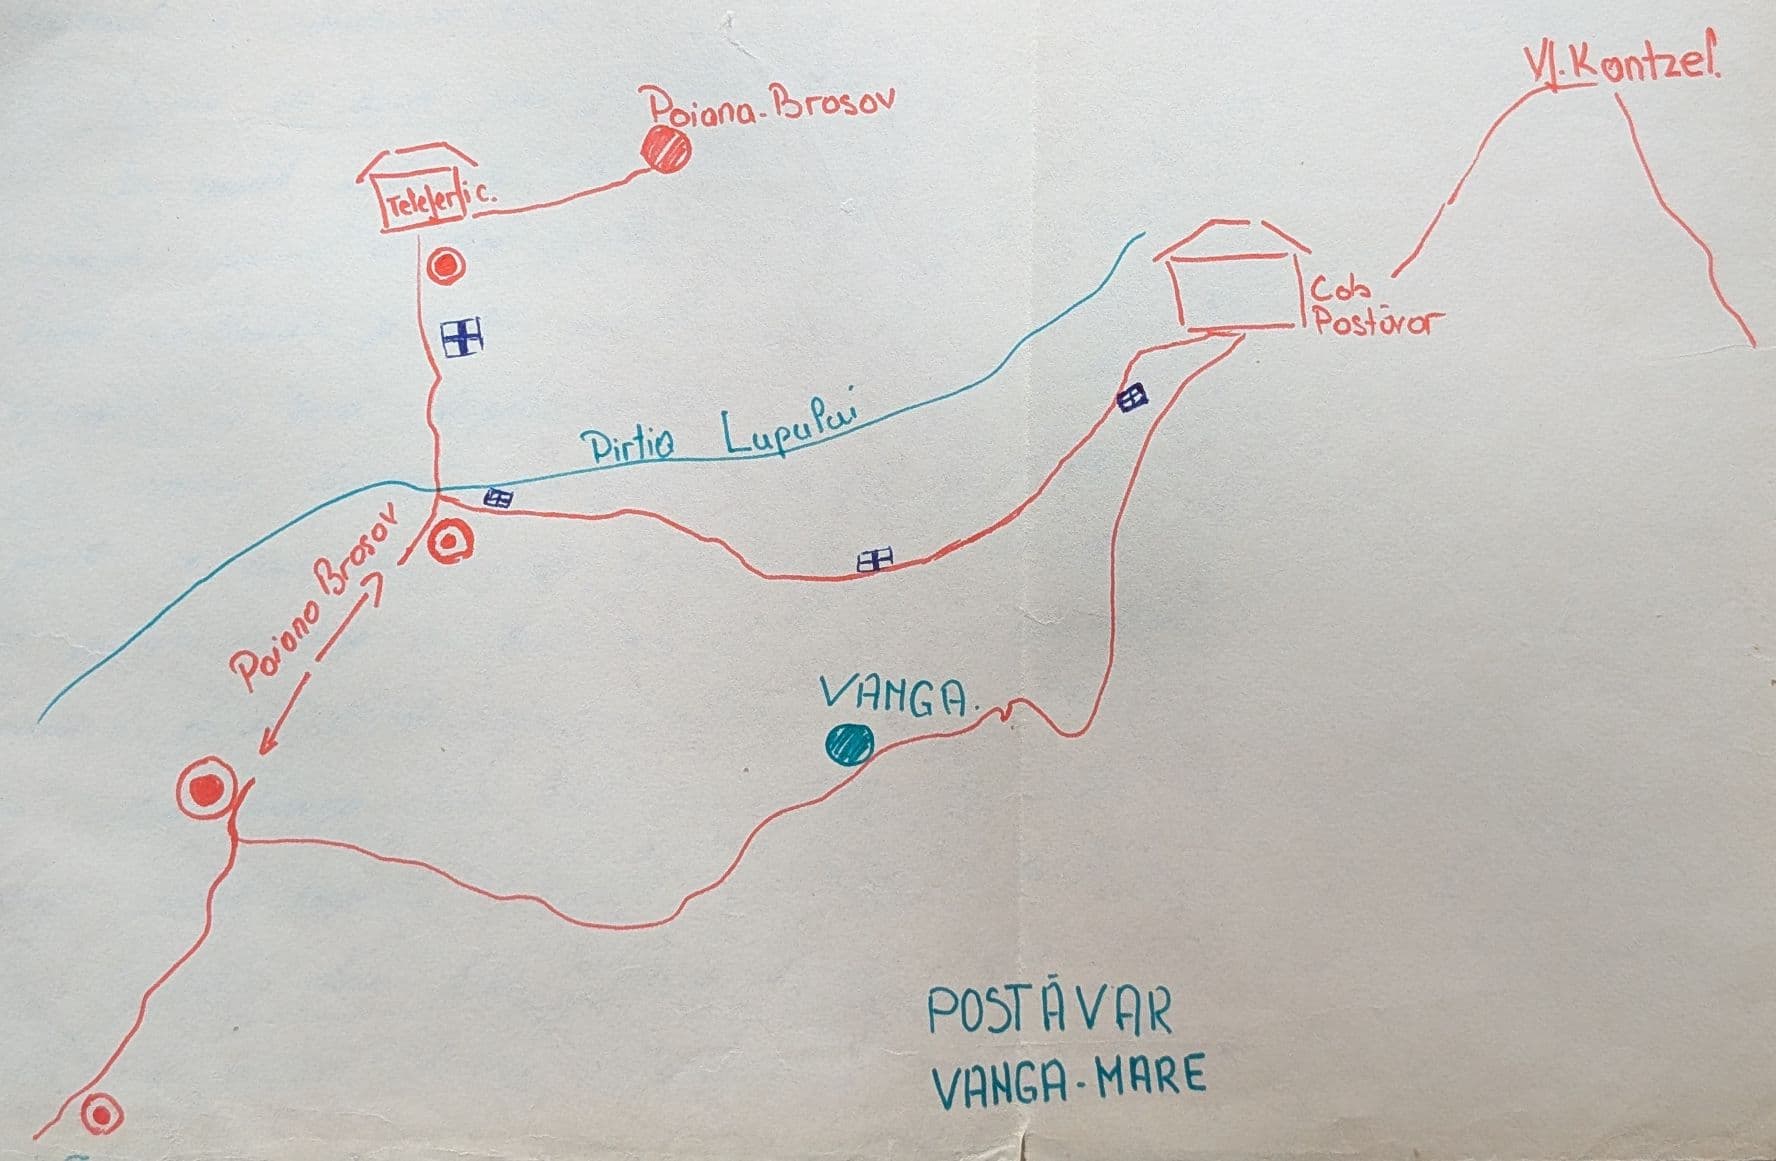 Vf. Kontzel.
Poiana-Brasov
Teleferic.
Cab
Postăvar
Pirtia Lupului
Poiana Brasov
VANGA.
POSTĂVAR
VANGA-MARE